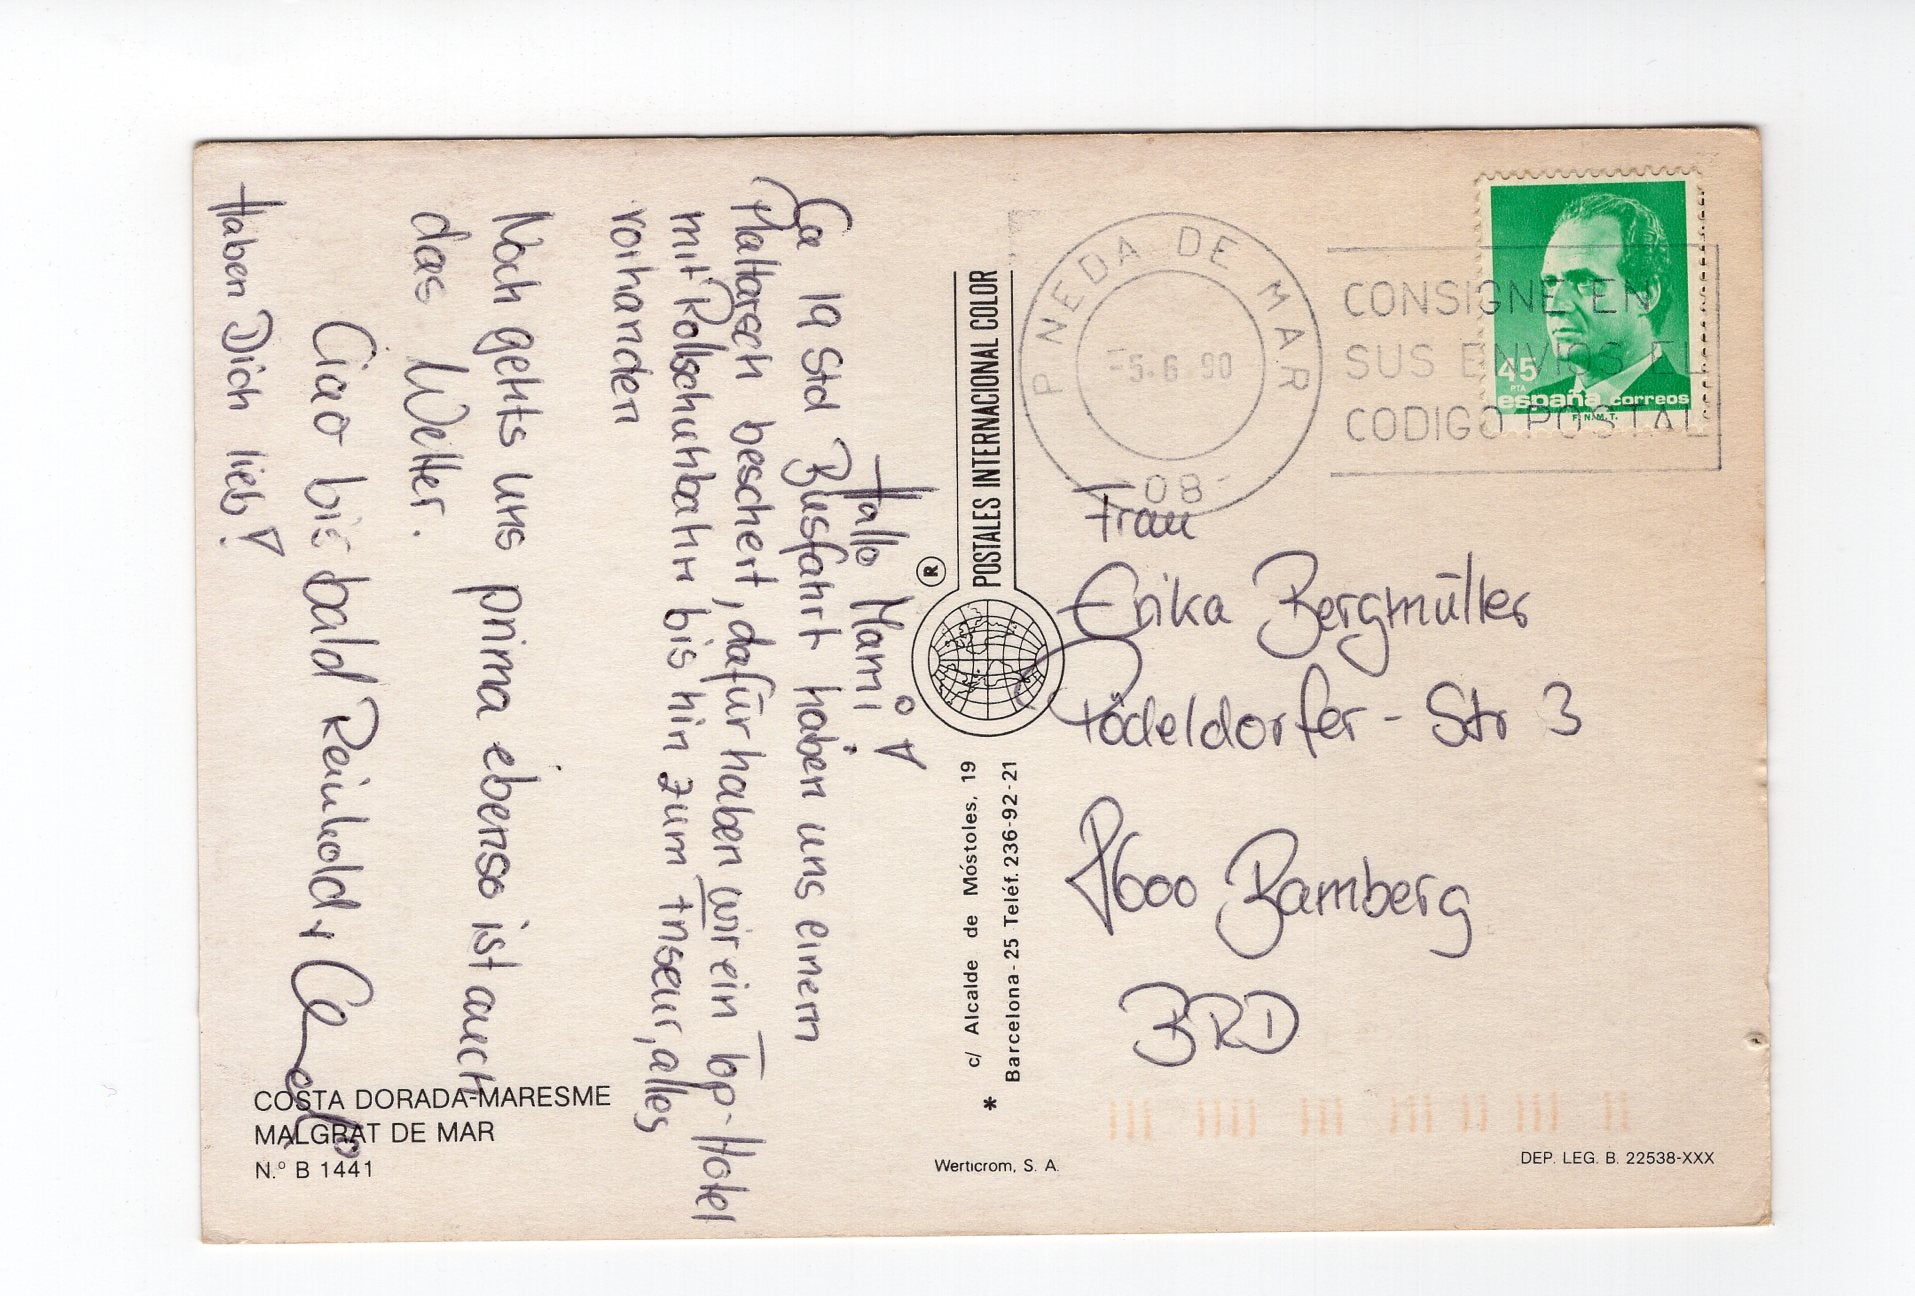 Hallo Mami!
Ca 19 Std Busfahrt haben uns einem
Plattarsch beschert, dafür haben wir ein Top-Hotel
mit Rollschuhbahn bis hin zum Friseur, alles
vorhanden
Noch gehts uns prima ebenso ist auch
das Wetter.
Ciao bis bald Reinhold +
Haben Dich lieb!
COSTA DORADA-MARESME
MALGRAT DE MAR
N.º B 1441
POSTALES INTERNACIONAL COLOR
®
c/ Alcalde de Móstoles, 19
Barcelona - 25 Teléf. 236-92-21
*
Werticrom, S. A.
PINEDA DE MAR
-5.6.90
-08-
CONSIGNE EN
SUS ENVIOS EL
CODIGO POSTAL
45
PTA
españa correos
F.N.M.T.
Frau
Erika Bergmüller
Pödeldorfer-Str 3
8600 Bamberg
BRD
DEP. LEG. B. 22538-XXX